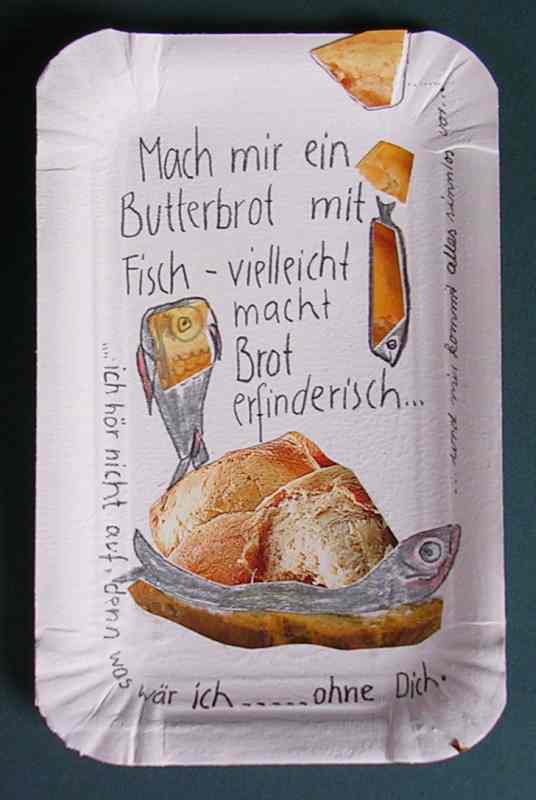 Mach mir ein
Butterbrot mit
Fisch - vielleicht
macht
Brot
erfinderisch...
... und mir kommt alles sinnlos vor...
....ich hör nicht auf, denn was
wär ich ......ohne Dich.